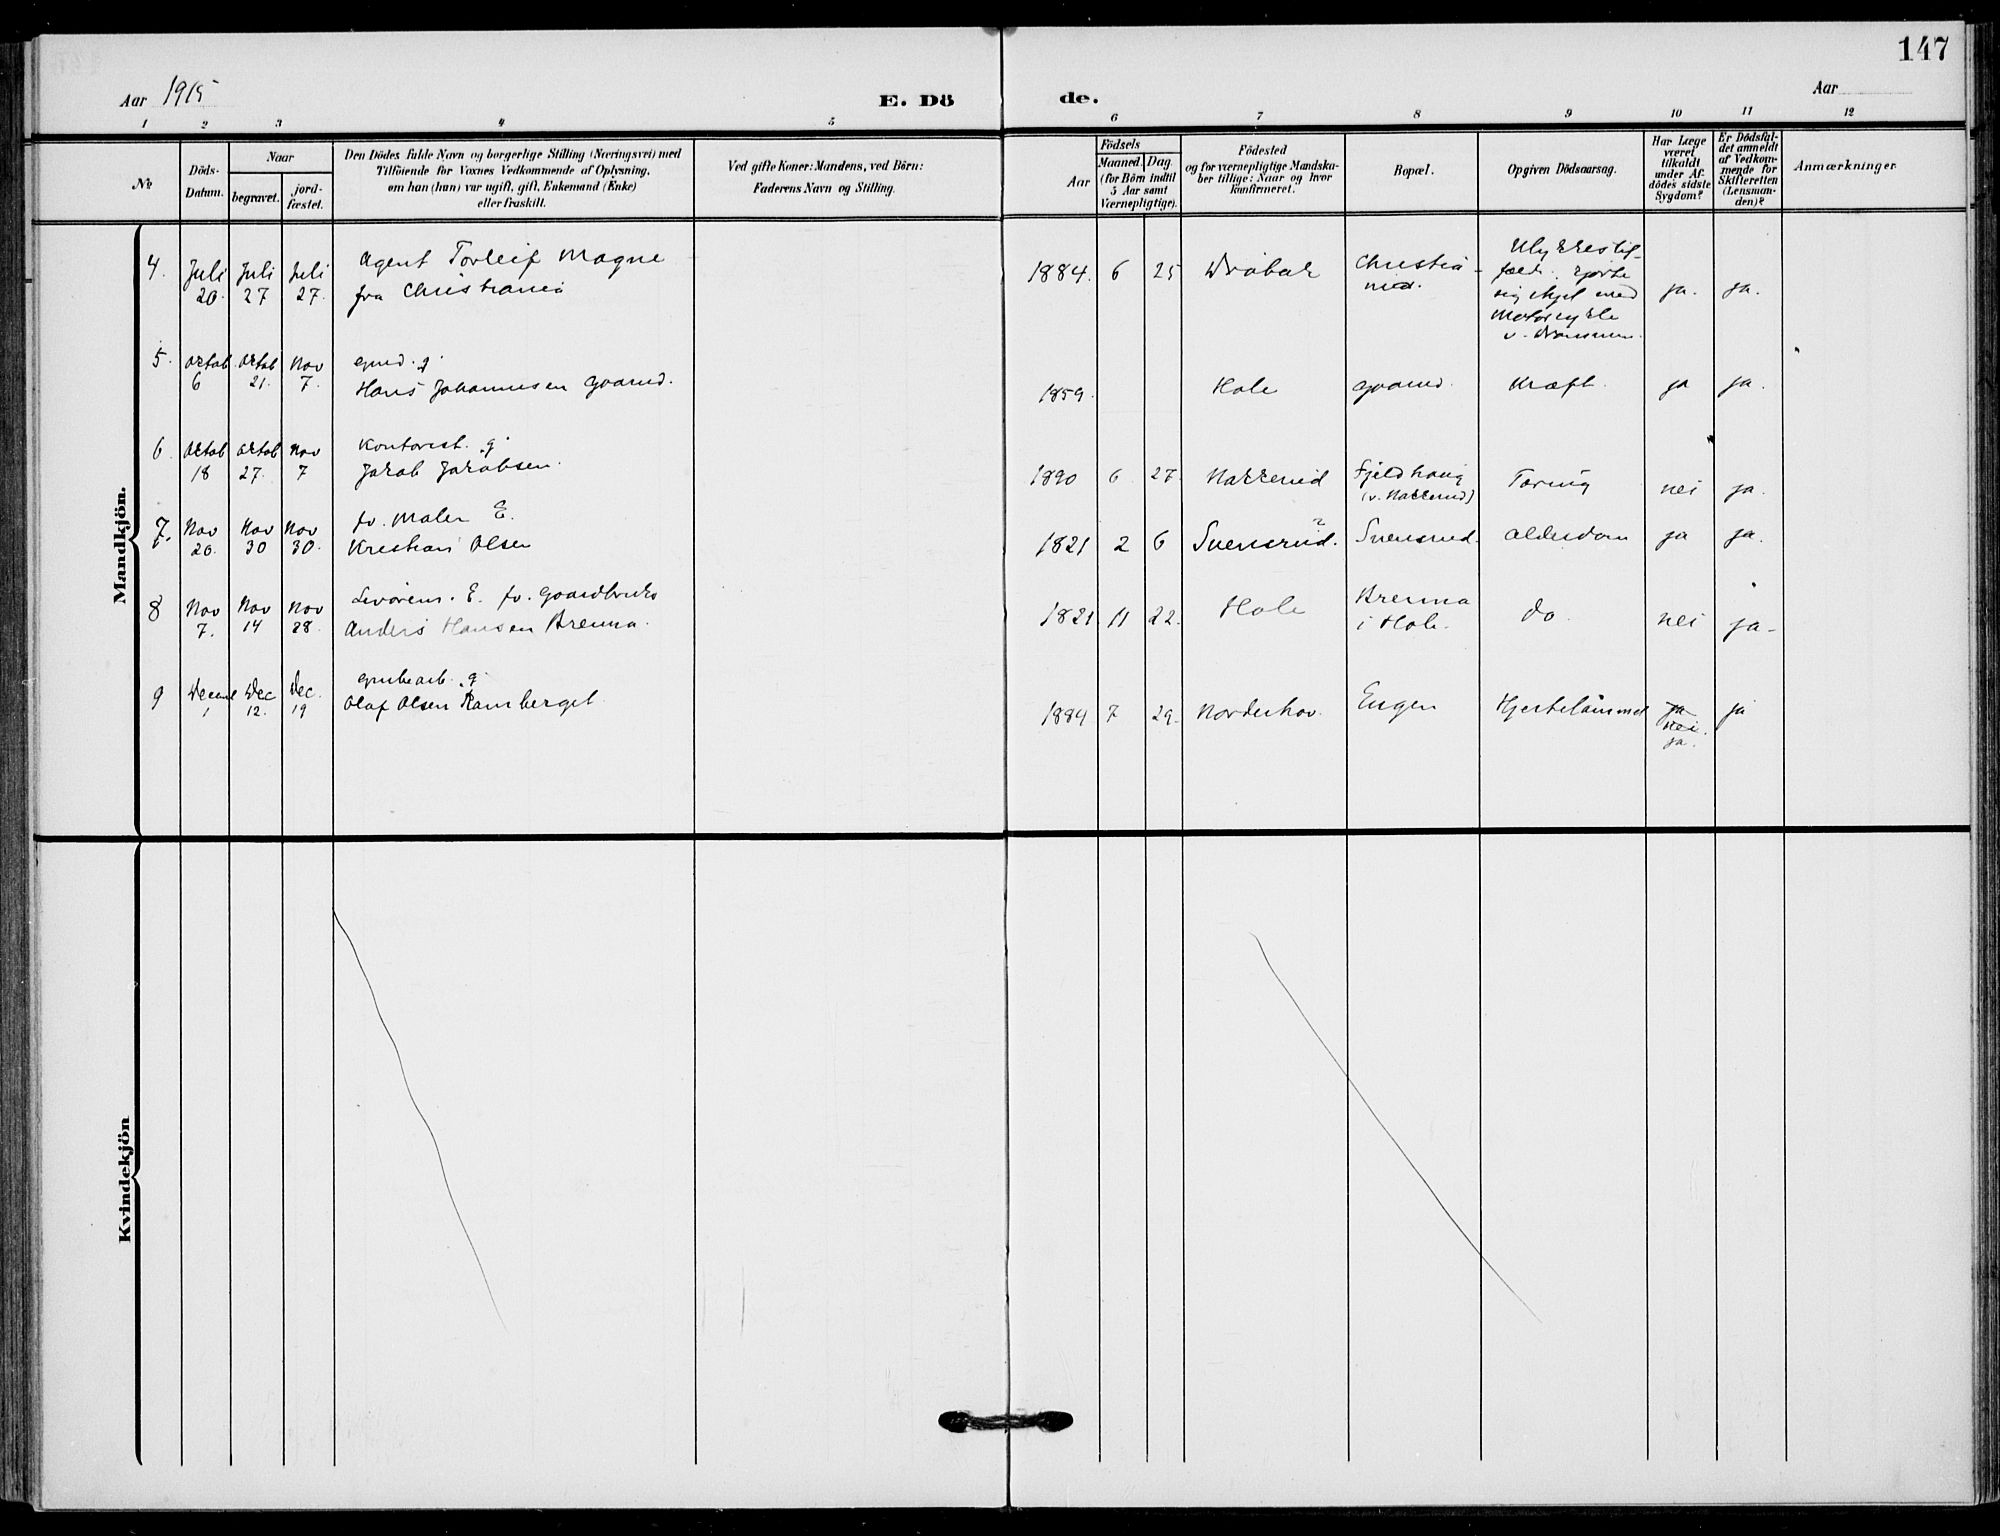 147
Aar 1915
E. Dö
de.
Aar
1 2 3 4 5 6 7 8 9 10 11 12
№
Döds-
Datum.
Naar
begravet.
jord-
fæstet.
Den Dödes fulde Navn og borgerlige Stilling (Næringsvei) med
Tilföiende for Voxnes Vedkommende af Oplysning,
om han (hun) var ugift, gift, Enkemand (Enke)
eller fraskilt.
Ved gifte Koner: Mandens, ved Börn:
Faderens Navn og Stilling.
Födsels
Aar
Maaned. Dag.
(for Börn indtil
5 Aar samt
Værnepligtige).
Födested
og for værnepligtige Mandska-
ber tillige: Naar og hvor
konfirmeret.
Bopæl.
Opgiven Dödsaarsag.
Har Læge
været
tilkaldt
under Af-
dödes sidste
Sygdom?
Er Dödsfal-
det anmeldt
af Vedkom-
mende for
Skifteretten
(Lensman-
den)?
Anmærkninger
Mandkjön.
4. Juli 20. Juli 27 Juli 27.
Agent Torleif Magne
fra Christiania
1884. 6 25 Dröbak
Christia-
nia.
Ulykkestil-
fælde, kjørte
sig ihjel med
Motorcykle
ja. ja.
5. Oktob 6 Oktob 21. Nov 7.
gmd. g
Hans Johannesen Gaarud.
1859. Hole Gaarud. Kræft. ja ja.
6. Oktob 18 Oktob 27. Nov 7
Kontorist. g
Jakob Jakobsen.
1890 6 27. Nakkerud
Fjeldhaug
(v. Nakkerud)
Tæring nei ja.
7. Nov 20. Nov 30 Nov 30.
fv. Maler E.
Kristian Olsen
1821 2 6 Svensrud. ? Svensrud. Alderdom ja ja.
8 Nov 7. Nov 14 Nov 28.
E. fv. Gaardbruker
Anders Hansen Brenna.
1821 11 22. Hole
Brenna
i Hole.
do. nei ja-
9 Decemb 1 Dec 12. Dec. 19
grubearb. g.
Olaf Olsen Ramberget.
1884 7 29. Norderhov. Engen Hjertelammel
ja
nei.
ja.
ja
Kvindekjön